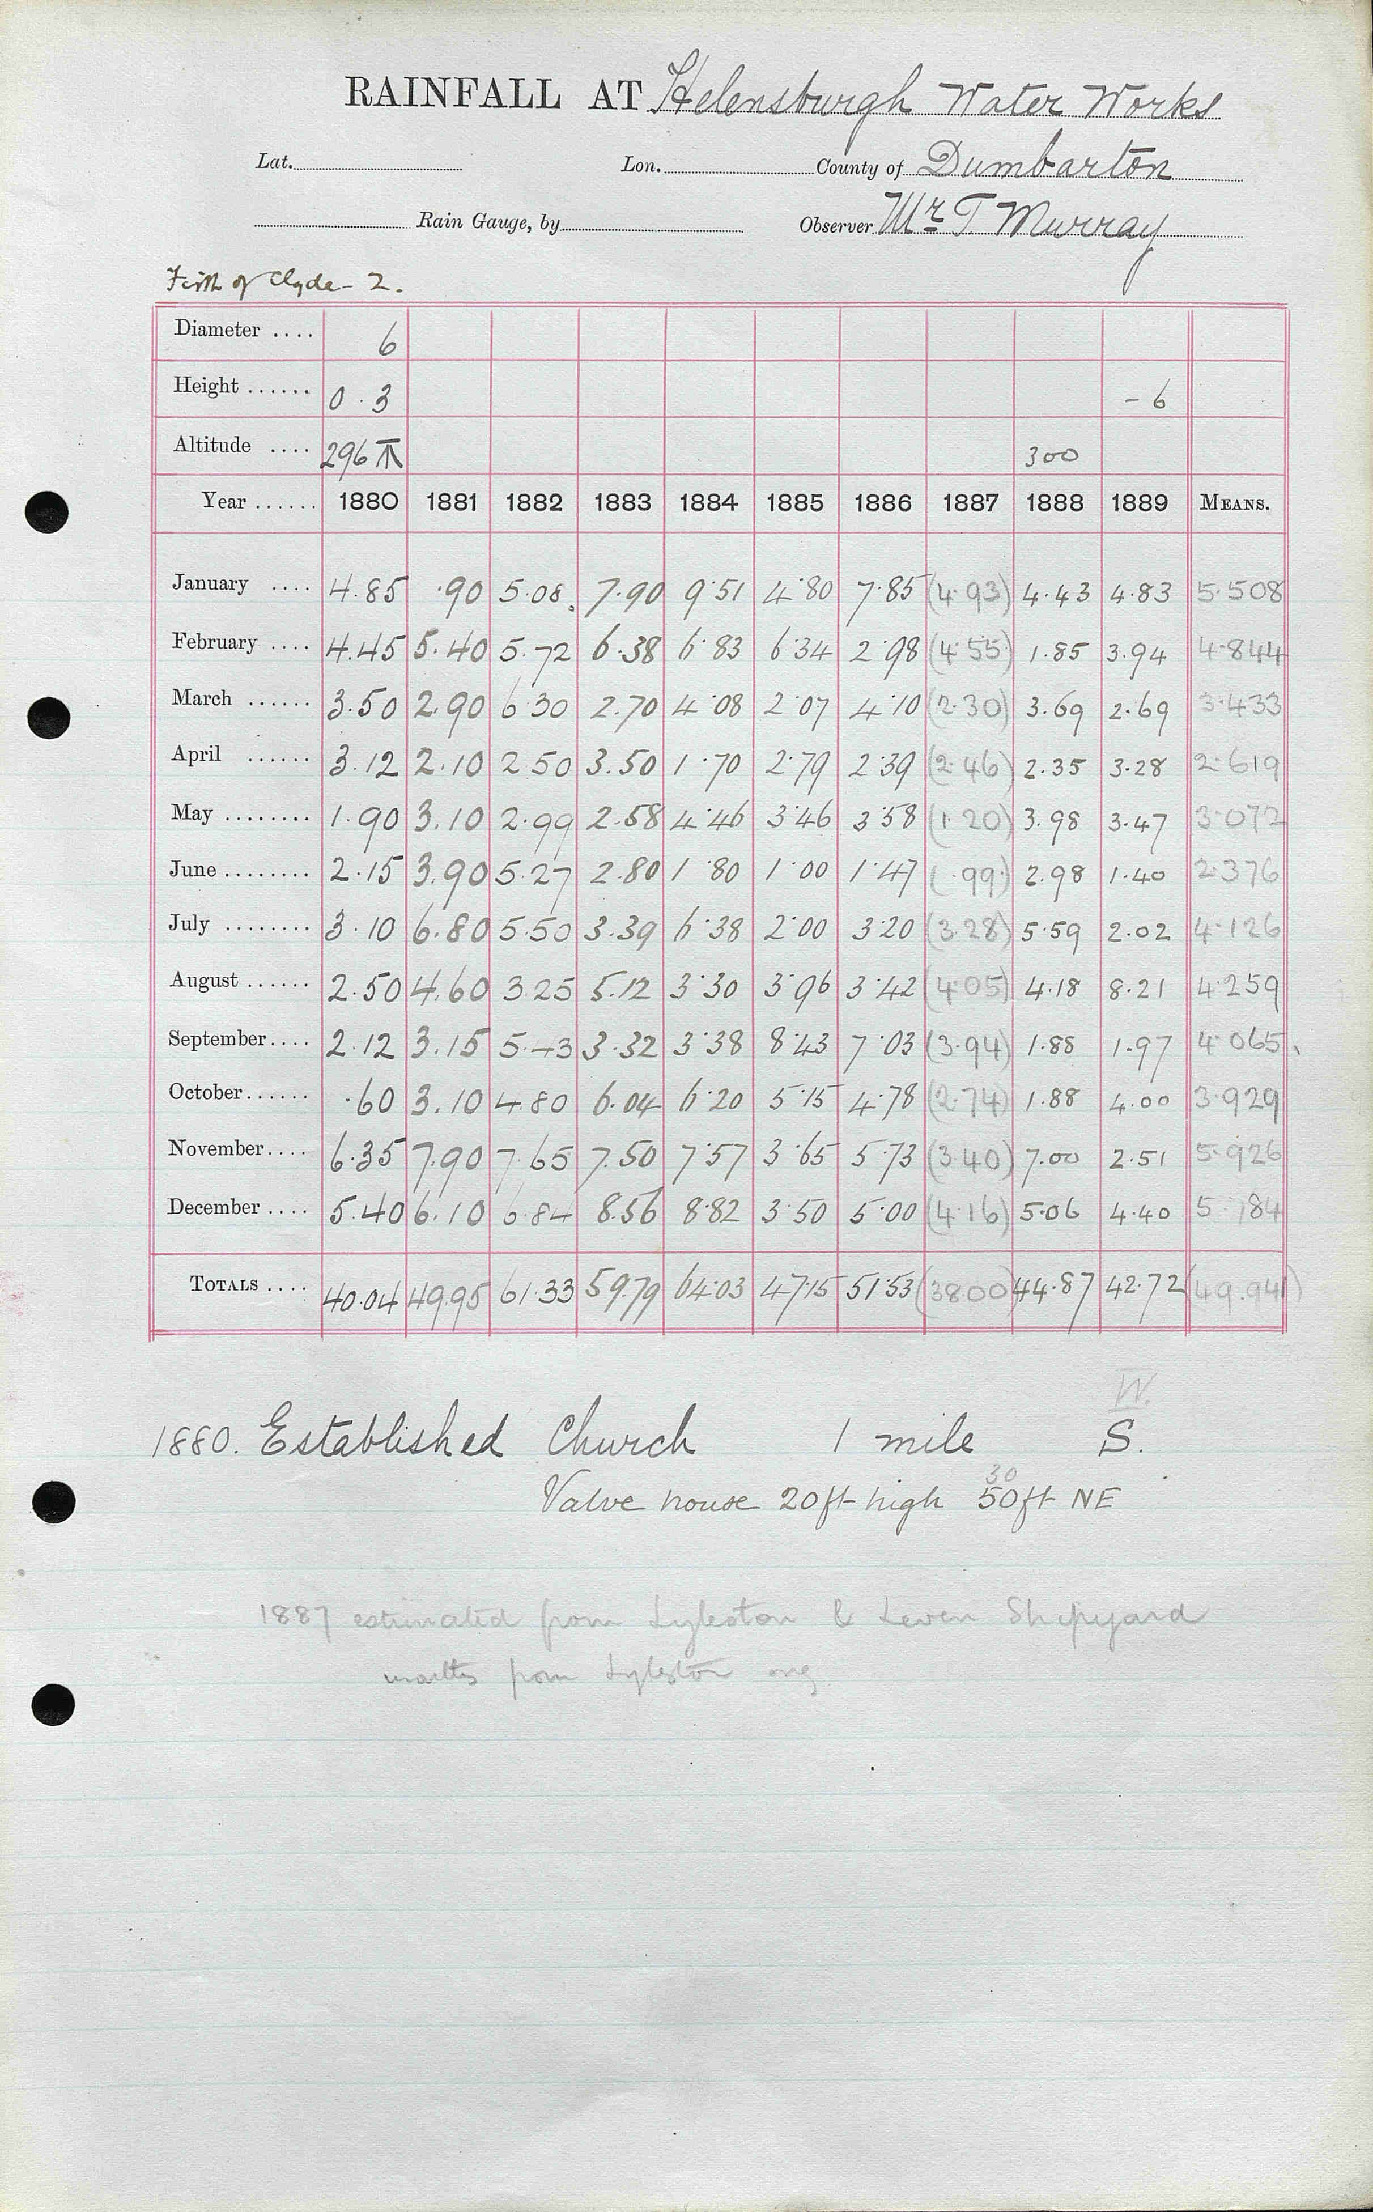 RAINFALL AT Helensburgh Water Works
Lat. Lon. County of Dumbarton
Rain Gauge, by Observer Mr T Murray
Firth of Clyde - 2.
Diameter .... 6
Height ...... 0.3 - 6
Altitude .... 296 300
Year ...... 1880 1881 1882 1883 1884 1885 1886 1887 1888 1889 MEANS.
January .... 4.85 .90 5.08 7.90 9.51 4.80 7.85 (4.93) 4.43 4.83 5.508
February .... 4.45 5.40 5.72 6.38 6.83 6.34 2.98 (4.55) 1.85 3.94 4.844
March ...... 3.50 2.90 6.30 2.70 4.08 2.07 4.10 (2.30) 3.69 2.69 3.433
April ...... 3.12 2.10 2.50 3.50 1.70 2.79 2.39 (2.46) 2.35 3.28 2.619
May ........ 1.90 3.10 2.99 2.58 4.46 3.46 3.58 (1.20) 3.98 3.47 3.072
June ........ 2.15 3.90 5.27 2.80 1.80 1.00 1.47 (.99) 2.98 1.40 2.376
July ........ 3.10 6.80 5.50 3.39 6.38 2.00 3.20 (3.28) 5.59 2.02 4.126
August ...... 2.50 4.60 3.25 5.12 3.30 3.96 3.42 (4.05) 4.18 8.21 4.259
September.... 2.12 3.15 5.43 3.32 3.38 8.43 7.03 (3.94) 1.88 1.97 4.065
October...... .60 3.10 4.80 6.04 6.20 5.15 4.78 (2.74) 1.88 4.00 3.929
November.... 6.35 7.90 7.65 7.50 7.57 3.65 5.73 (3.40) 7.00 2.51 5.926
December .... 5.40 6.10 6.84 8.56 8.82 3.50 5.00 (4.16) 5.06 4.40 5.784
TOTALS .... 40.04 49.95 61.33 59.79 64.03 47.15 51.53 (38.00) 44.87 42.72 (49.941)
W.
1880. Established Church 1 mile S.
30
Valve house 20ft high 50ft NE
1887 estimated from Lyleston & Leven Shipyard
months from Lyleston only